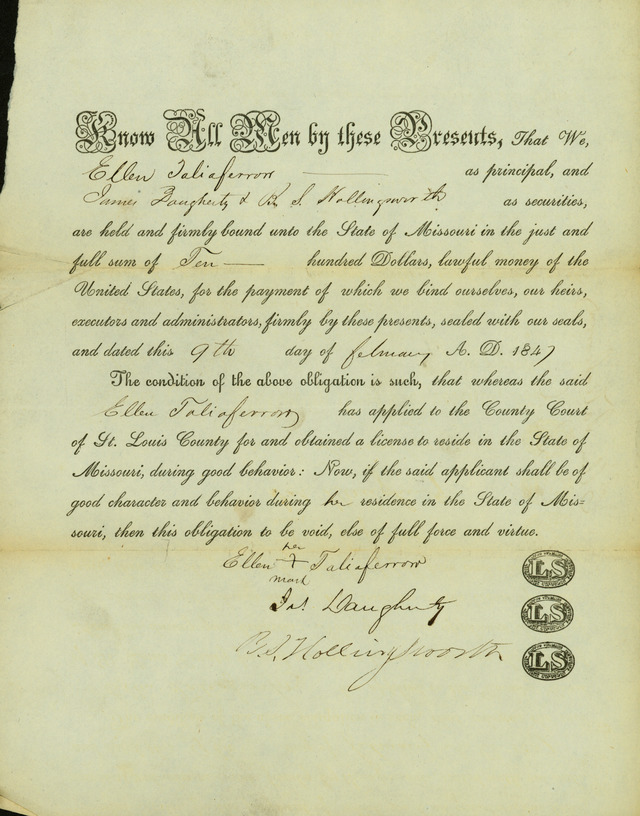 Know All Men by these Presents, That We,
Ellen Taliaferrow as principal, and
James Daugherty & B. S. Hollingsworth as securities,
are held and firmly bound unto the State of Missouri in the just and
full sum of Ten hundred Dollars, lawful money of the
United States, for the payment of which we bind ourselves, our heirs,
executors and administrators, firmly by these presents, sealed with our seals,
and dated this 9th day of february A. D. 1847
The condition of the above obligation is such, that whereas the said
Ellen Taliaferrow has applied to the County Court
of St. Louis County for and obtained a license to reside in the State of
Missouri, during good behavior: Now, if the said applicant shall be of
good character and behavior during her residence in the State of Mis=
souri, then this obligation to be void, else of full force and virtue.
her
Ellen + Taliaferrow LS
mark
Jas Daugherty LS
B. S. Hollingsworth LS